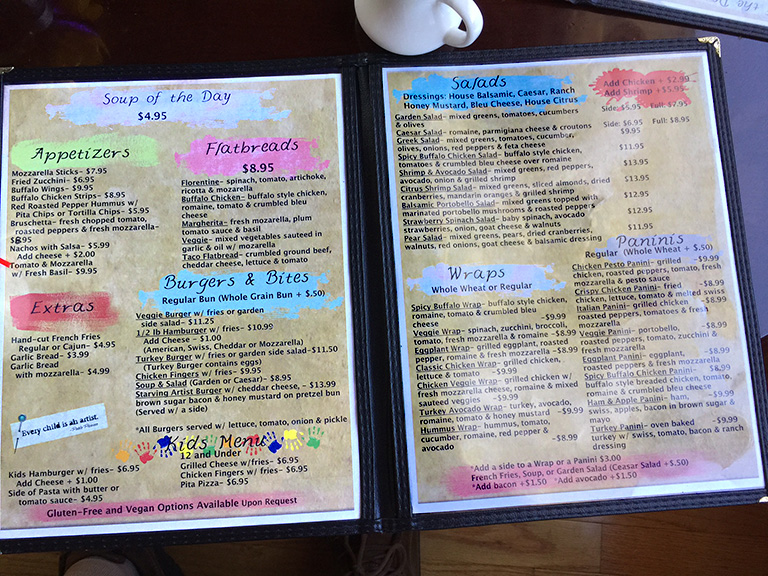 Soup of the Day
$4.95
Appetizers
Mozzarella Sticks- $7.95
Fried Zucchini- $6.95
Buffalo Wings- $9.95
Buffalo Chicken Strips- $8.95
Red Roasted Pepper Hummus w/
Pita Chips or Tortilla Chips- $5.95
Bruschetta- fresh chopped tomato,
roasted peppers & fresh mozzarella-
$8.95
Nachos with Salsa- $5.99
Add cheese + $2.00
Tomato & Mozzarella
w/ Fresh Basil- $9.95
Extras
Hand-cut French Fries
Regular or Cajun- $4.95
Garlic Bread- $3.99
Garlic Bread
with mozzarella- $4.99
Every child is an artist.
-Pablo Picasso
Flatbreads
$8.95
Florentine- spinach, tomato, artichoke,
ricotta & mozarella
Buffalo Chicken- buffalo style chicken,
romaine, tomato & crumbled bleu
cheese
Margherita- fresh mozarella, plum
tomato sauce & basil
Veggie- mixed vegetables sauteed in
garlic & oil w/ mozarella
Taco Flatbread- crumbled ground beef,
cheddar cheese, lettuce & tomato
Burgers & Bites
Regular Bun (Whole Grain Bun + $.50)
Veggie Burger w/ fries or garden
side salad- $11.25
1/2 lb Hamburger w/ fries- $10.99
Add Cheese - $1.00
(American, Swiss, Cheddar or Mozzarella)
Turkey Burger w/ fries or garden side salad-$11.50
(Turkey Burger contains eggs)
Chicken Fingers w/ fries- $9.95
Soup & Salad (Garden or Caesar)- $8.95
Starving Artist Burger w/ cheddar cheese, - $13.99
brown sugar bacon & honey mustard on pretzel bun
(Served w/ a side)
*All Burgers served w/ lettuce, tomato, onion & pickle
Kids Menu
12 and Under
Kids Hamburger w/ fries- $6.95
Add Cheese + $1.00
Side of Pasta with butter or
tomato sauce- $4.95
Grilled Cheese w/fries- $6.95
Chicken Fingers w/ fries- $6.95
Pita Pizza- $6.95
Gluten-Free and Vegan Options Available Upon Request
Salads
Dressings: House Balsamic, Caesar, Ranch
Honey Mustard, Bleu Cheese, House Citrus
Add Chicken + $2.99
Add Shrimp +$5.95
Garden Salad- mixed greens, tomatoes, cucumbers Side: $5.95 Full: $7.95
& olives
Caesar Salad- romaine, parmigiana cheese & croutons Side: $6.95 Full: $8.95
Greek Salad- mixed greens, tomatoes, cucumber, $9.95
olives, onions, red peppers & feta cheese
Spicy Buffalo Chicken Salad- buffalo style chicken, $11.95
tomatoes & crumbled bleu cheese over romaine
Shrimp & Avocado Salad- mixed greens, red peppers, $13.95
avocado, onion & grilled shrimp
Citrus Shrimp Salad- mixed greens, sliced almonds, dried $13.95
cranberries, mandarin oranges & grilled shrimp
Balsamic Portobello Salad- mixed greens topped with $12.95
marinated portobello mushrooms & roasted peppers
Strawberry Spinach Salad- baby spinach, avocado $12.95
strawberries, onion, goat cheese & walnuts
Pear Salad- mixed greens, pears, dried cranberries, $11.95
walnuts, red onions, goat cheese & balsamic dressing
Wraps
Whole Wheat or Regular
Spicy Buffalo Wrap- buffalo style chicken,
romaine, tomato & crumbled bleu
cheese -$9.99
Veggie Wrap- spinach, zucchini, broccoli,
tomato, fresh mozzarella & romaine -$8.99
Eggplant Wrap- grilled eggplant, roasted
pepper, romaine & fresh mozzarella -$8.99
Classic Chicken Wrap- grilled chicken,
lettuce & tomato -$9.99
Chicken Veggie Wrap- grilled chicken w/
fresh mozzarella cheese, romaine & mixed
sauteed veggies -$9.99
Turkey Avocado Wrap- turkey, avocado,
romaine, tomato & honey mustard -$9.99
Hummus Wrap- hummus, tomato,
cucumber, romaine, red pepper &
avocado -$8.99
Paninis
Regular (Whole Wheat + $.50)
Chicken Pesto Panini- grilled -$9.99
chicken, roasted peppers, tomato, fresh
mozzarella & pesto sauce
Crispy Chicken Panini- fried -$9.99
chicken, lettuce, tomato & melted swiss
Italian Panini- grilled chicken, -$9.99
roasted peppers, tomatoes & fresh
mozzarella
Veggie Panini- portobello, -$8.99
roasted peppers, tomato, zucchini &
fresh mozzarella
Eggplant Panini- eggplant, -$8.99
roasted peppers & fresh mozzarella
Spicy Buffalo Chicken Panini- -$8.99
buffalo style breaded chicken, tomato,
romaine & crumbled bleu cheese
Ham & Apple Panini- ham, -$9.99
swiss, apples, bacon in brown sugar &
mayo
Turkey Panini- oven baked -$9.99
turkey w/ swiss, tomato, bacon & ranch
dressing
*Add a side to a Wrap or a Panini $3.00
French Fries, Soup, or Garden Salad (Ceasar Salad +$.50)
*Add bacon +$1.50 *Add avocado +$1.50